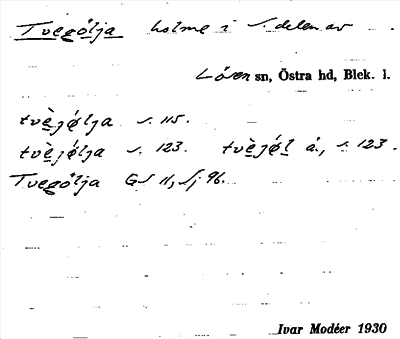 Tvegölja holme i S. delen av
Lösen sn, Östra hd, Blek. l.
tvèjǿlja s. 115.
tvèjǿlja s. 123. tvèjǿl å., s. 123.
Tvegölja GS 11, Sj 96.
Ivar Modéer 1930